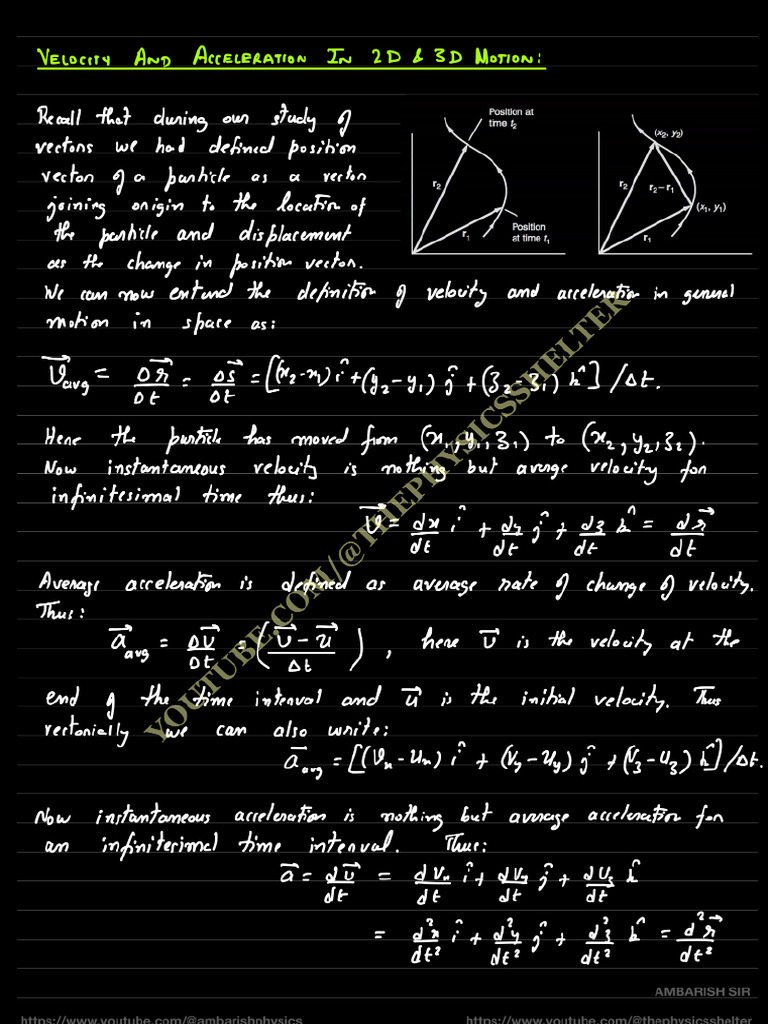 VELOCITY AND ACCELERATION IN 2D & 3D MOTION:
Recall that during our study of
vectors we had defined position
vector of a particle as a vector
joining origin to the location of
the particle and displacement
as the change in position vector.
Position at
time t₂
r₂
r₁
Position
at time t₁
(x₂, y₂)
r₂
r₂−r₁
(x₁, y₁)
r₁
We can now extend the definition of velocity and acceleration in general
motion in space as:
v⃗avg = Δr⃗/Δt = Δs⃗/Δt = [(x₂−x₁)î+(y₂−y₁)ĵ+(z₂−z₁)k̂]/Δt.
Here the particle has moved from (x₁,y₁,z₁) to (x₂,y₂,z₂).
Now instantaneous velocity is nothing but averge velocity for
infinitesimal time thus:
v⃗ = dx/dt î + dy/dt ĵ + dz/dt k̂ = dr⃗/dt
Average acceleration is defined as average rate of change of velocity.
Thus:
a⃗avg = Δv⃗/Δt = (v⃗−u⃗/Δt), here v⃗ is the velocity at the
end of the time interval and u⃗ is the initial velocity. Thus
vectorially we can also write:
a⃗avg = [(vx−ux)î + (vy−uy)ĵ + (vz−uz)k̂]/Δt.
Now instantaneous acceleration is nothing but average acceleration for
an infinitesimal time interval. Thus:
a⃗ = dv⃗/dt = dvx/dt î + dvy/dt ĵ + dvz/dt k̂
= d²x/dt² î + d²y/dt² ĵ + d²z/dt² k̂ = d²r⃗/dt²
YOUTUBE.COM/@THEPHYSICSSHELTER
AMBARISH SIR
https://www.youtube.com/@ambarishphysics
https://www.youtube.com/@thephysicsshelter